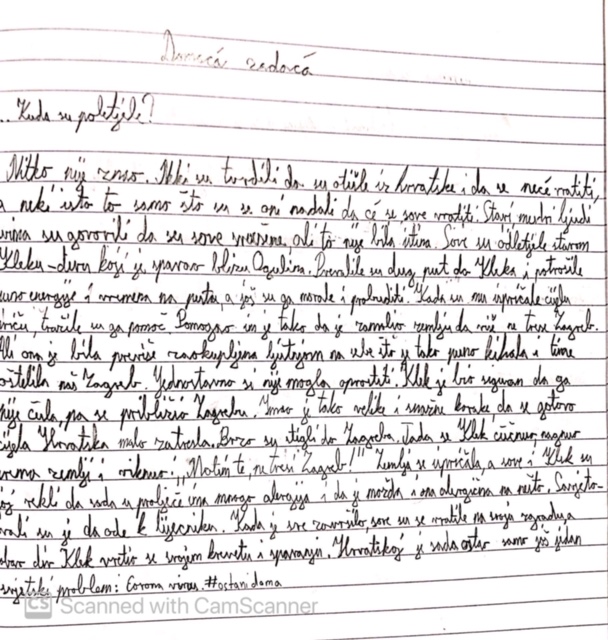 Domaća zadaća
... Kuda su poletjele?
Nitko nije znao. Neki su tvrdili da su otišle iz hrvatske i da se neće vratiti,
a neki isto to samo što su se oni nadali da će se sove vratiti. Stari mudri ljudi
su govorili da su sove ali to nije bila istina. Sove su odletjele starom
Kleku-divu koji je spavao blizu Ogulina. Prevalile su dug put do Kleka i potrošile
puno energije i vremena na putu, a još su ga morale i probuditi. Kada su mu ispričale cijelu
priču, tražile su ga pomoć. Pomogao im je tako da je zamolio zemlju da više ne trese Zagreb.
Ali ona je bila previše zaokupljena ljutnjom na sebe što je tako puno kihala i time
oštetila naš Zagreb. Jednostavno si nije mogla oprostiti. Klek je bio siguran da ga
nije čula, pa se približio Zagrebu. Imao je tako velike i snažne korake da se gotovo
cijela Hrvatska malo zatresla. Brzo su stigli do Zagreba. Tada se Klek čučnuo, nagnuo
prema zemlji i viknuo: „Molim te, ne tresi Zagreb!" Zemlja se ispričala, a sove i Klek su
joj rekli da sada u proljeće ima mnogo alergija i da je možda i ona alergična na nešto. Savjeto-
vali su je da ode k liječniku. Kada je sve završilo sove su se vratile na svoja
dobar div Klek vratio se svojem krevetu i spavanju. Hrvatskoj je sada ostao samo još jedan
svjetski problem: Corona virus. #ostanidoma
CS Scanned with CamScanner